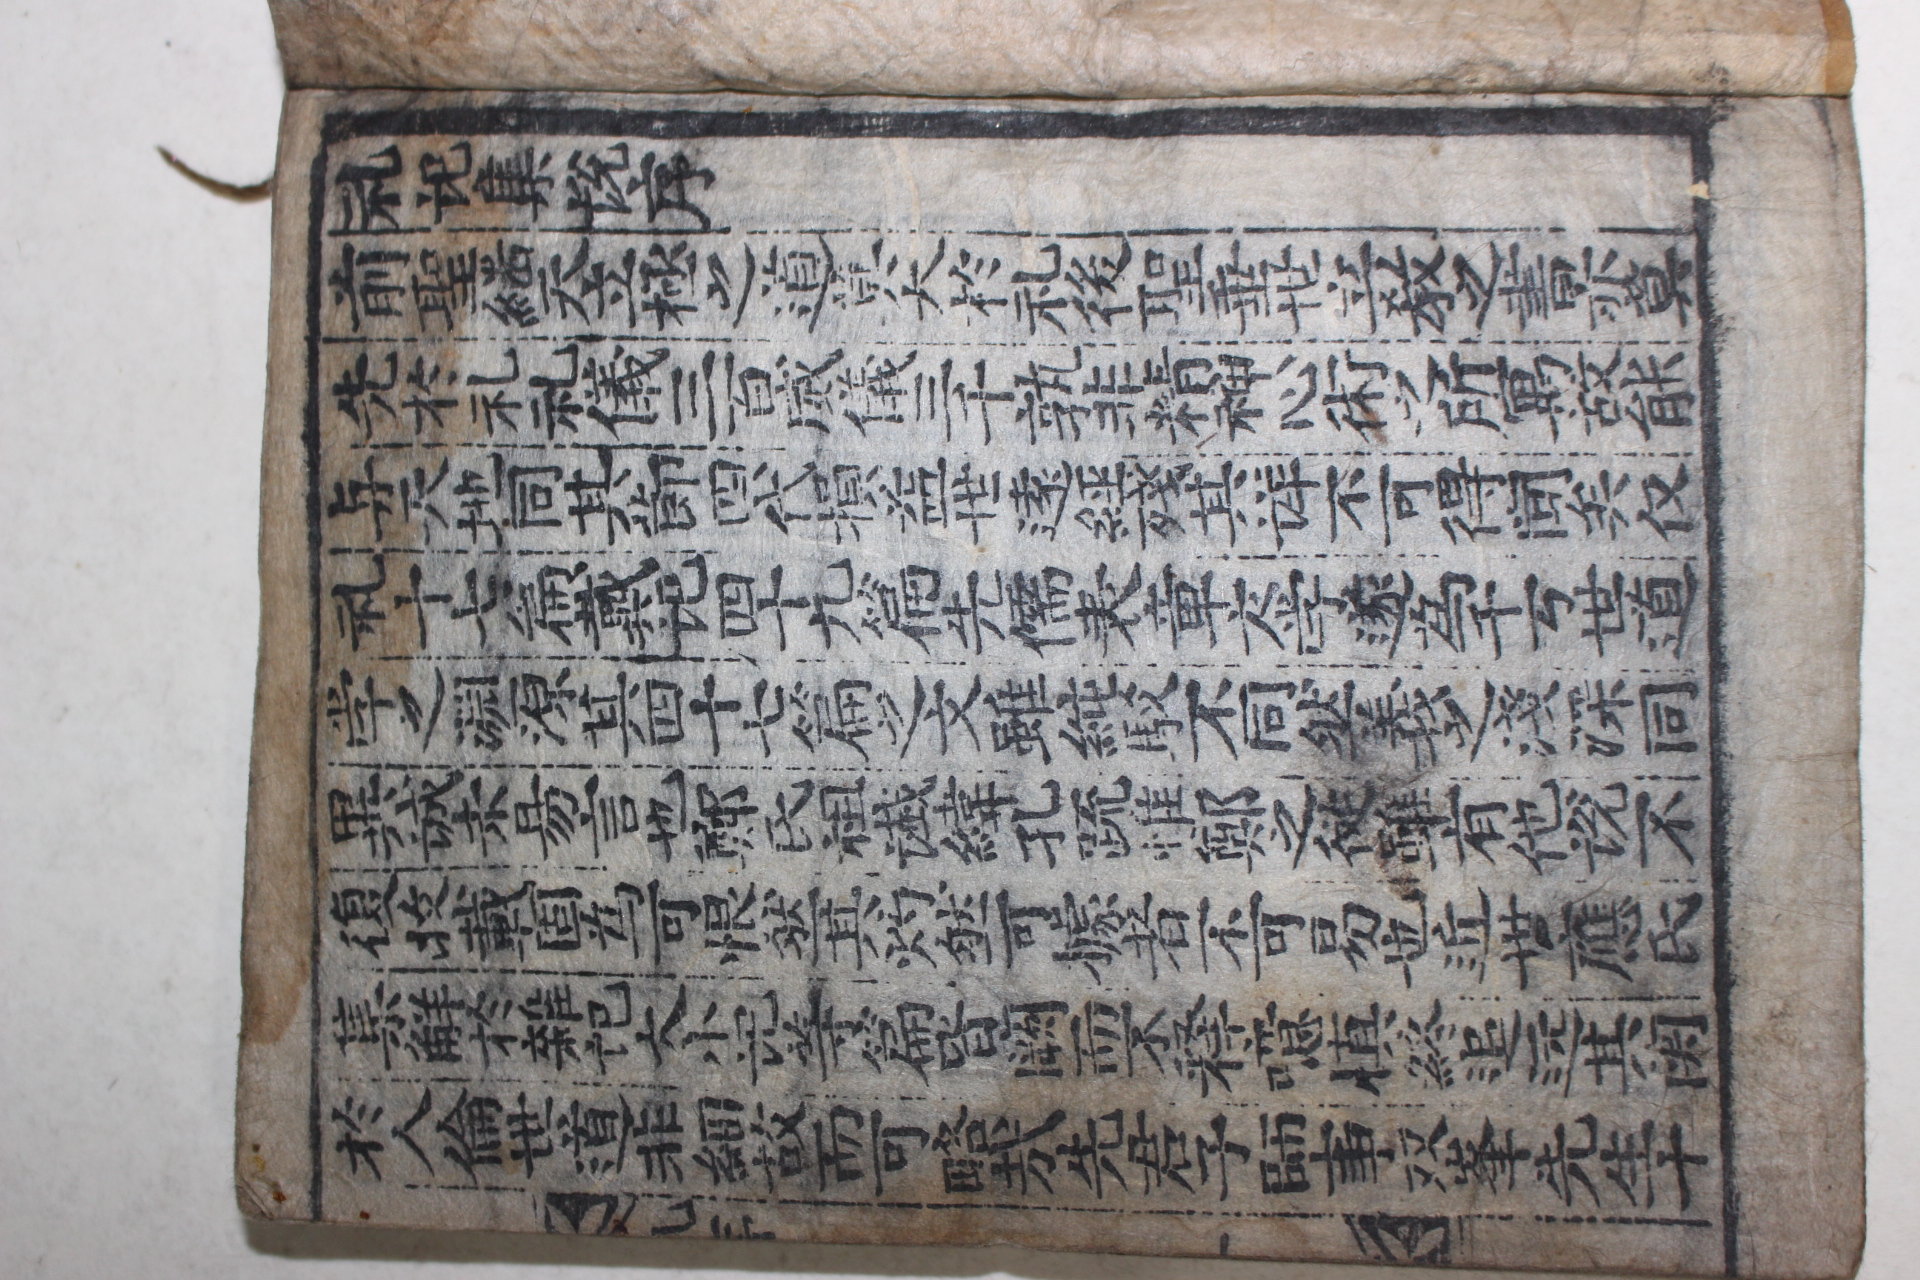 礼记集説序
前聖継天立極之道莫大於礼後聖垂世立教之書亦莫
先於礼礼儀三百威儀三千孰非精神心術之所寓故能
与天地同其節四代損益世遠経残其詳不可得闻矣仅
礼十七篇戴记四十九篇先儒表章文学遂為千万世道
学之淵源其四十七篇之文雖純駁不同然義之淺深同
異誠未易言也鄭氏祖讖緯孔疏惟鄭之従雖有他説不
復收載固為可恨然其灼然可據者不可易也近世應氏
集解於雜记大小记等篇皆闕而不释噫慎終追远其関
於人倫世道非細故而可略哉先君子師事双峯先生十
礼序